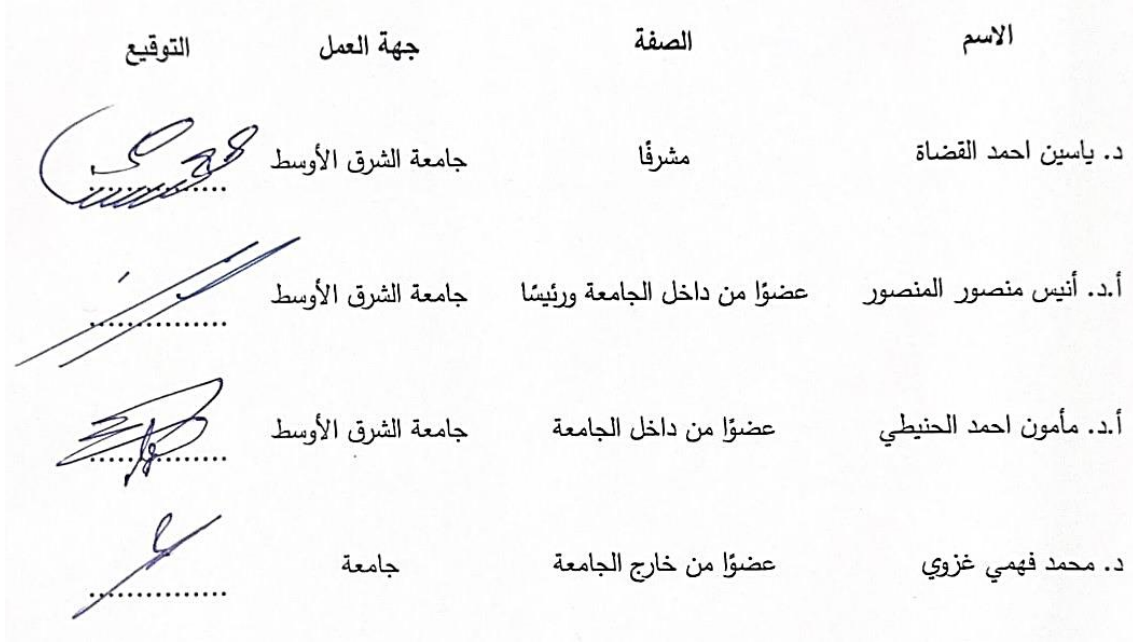 الاسم الصفة جهة العمل التوقيع
د. ياسين احمد القضاة مشرفًا جامعة الشرق الأوسط ...............
أ.د. أنيس منصور المنصور عضوًا من داخل الجامعة ورئيسًا جامعة الشرق الأوسط ...............
أ.د. مأمون احمد الحنيطي عضوًا من داخل الجامعة جامعة الشرق الأوسط ...............
د. محمد فهمي غزوي عضوًا من خارج الجامعة جامعة ...............